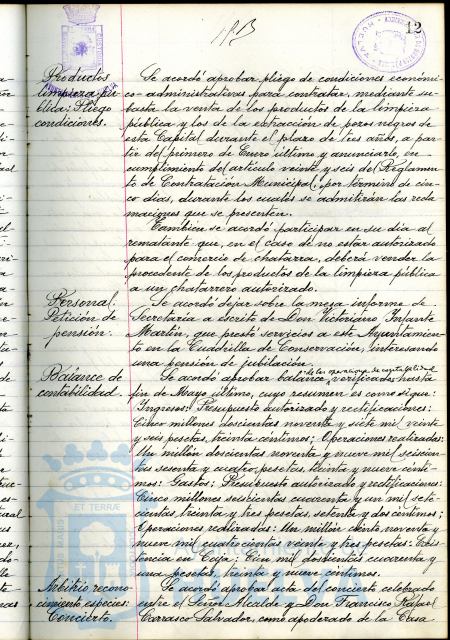 12
Productos
limpieza pú-
blica: Pliego
condiciones.
Se acordó aprobar pliego de condiciones económi-
co-administrativas para contratar, mediante su-
basta la venta de los productos de la limpieza
pública y los de la extracción de pozos negros de
esta Capital durante el plazo de tres años, a par-
tir del primero de Enero último y anunciarlo en
cumplimiento del artículo veinte y seis del Reglamen-
to de Contratación Municipal, por término de cin-
co días, durante los cuales se admitirán las recla
maciones que se presenten.
También se acordó participar en su día al
rematante que, en el caso de no estar autorizado
para el comercio de chatarra, deberá vender la
procedente de los productos de la limpieza pública
a un chatarrero autorizado.
Personal.
Petición de
pensión.
Se acordó dejar sobre la mesa informe de
Secretaría a escrito de Don Victoriano Infante
Martín, que prestó servicios a este Ayuntamien-
to en la Cuadrilla de Conservación, interesando
una pensión de jubilación.
Balance de
contabilidad.
de las operaciones de contabilidad
Se acordó aprobar balance, verificadas hasta
fin de Mayo último, cuyo resumen es como sigue:
Ingresos: Presupuesto autorizado y rectificaciones:
Cinco millones doscientas noventa y siete mil veinte
y seis pesetas, treinta centimos; Operaciones realizadas:
Un millón doscientas noventa y nueve mil seiscien-
tas sesenta y cuatro pesetas, treinta y nueve centi-
mos: Gastos: Presupuesto autorizado y rectificaciones:
Cinco millones seiscientas cuarenta y un mil sete-
cientas, treinta y tres pesetas, setenta y dos centimos;
Operaciones realizadas: Un millón ciento noventa y
nueve mil cuatrocientas veinte y tres pesetas: Exis-
tencia en Caja: Cien mil doscientas cuarenta y
una pesetas, treinta y nueve centimos.
Arbitrio recono-
cimiento especies:
Concierto.
Se acordó aprobar acta del concierto celebrado
entre el Señor Alcalde y Don Francisco Rafael
Carrasco Salvador, como apoderado de la Casa